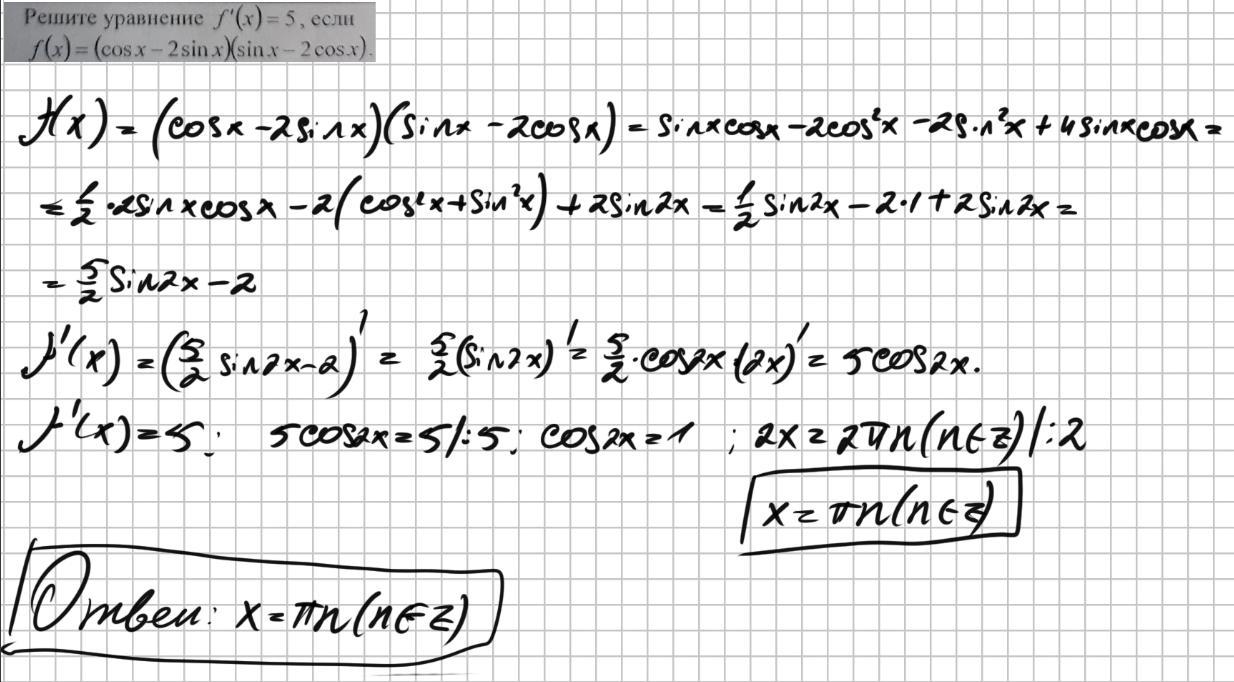 Решите уравнение f′(x) = 5, если
f(x) = (cos x − 2 sin x)(sin x − 2 cos x).
f(x) = (cosx − 2sinx)(sinx − 2cosx) = sinxcosx − 2cos²x − 2sin²x + 4sinxcosx =
= 1/2 · 2sinxcosx − 2(cos²x + sin²x) + 2sin2x = 1/2 sin2x − 2·1 + 2sin2x =
= 5/2 sin2x − 2
f′(x) = (5/2 sin2x − 2)′ = 5/2 (sin2x)′ = 5/2 · cos2x · (2x)′ = 5cos2x.
f′(x) = 5; 5cos2x = 5 /:5; cos2x = 1 ; 2x = 2πn (n∈Z) /:2
x = πn (n∈Z)
Ответ: x = πn (n∈Z)